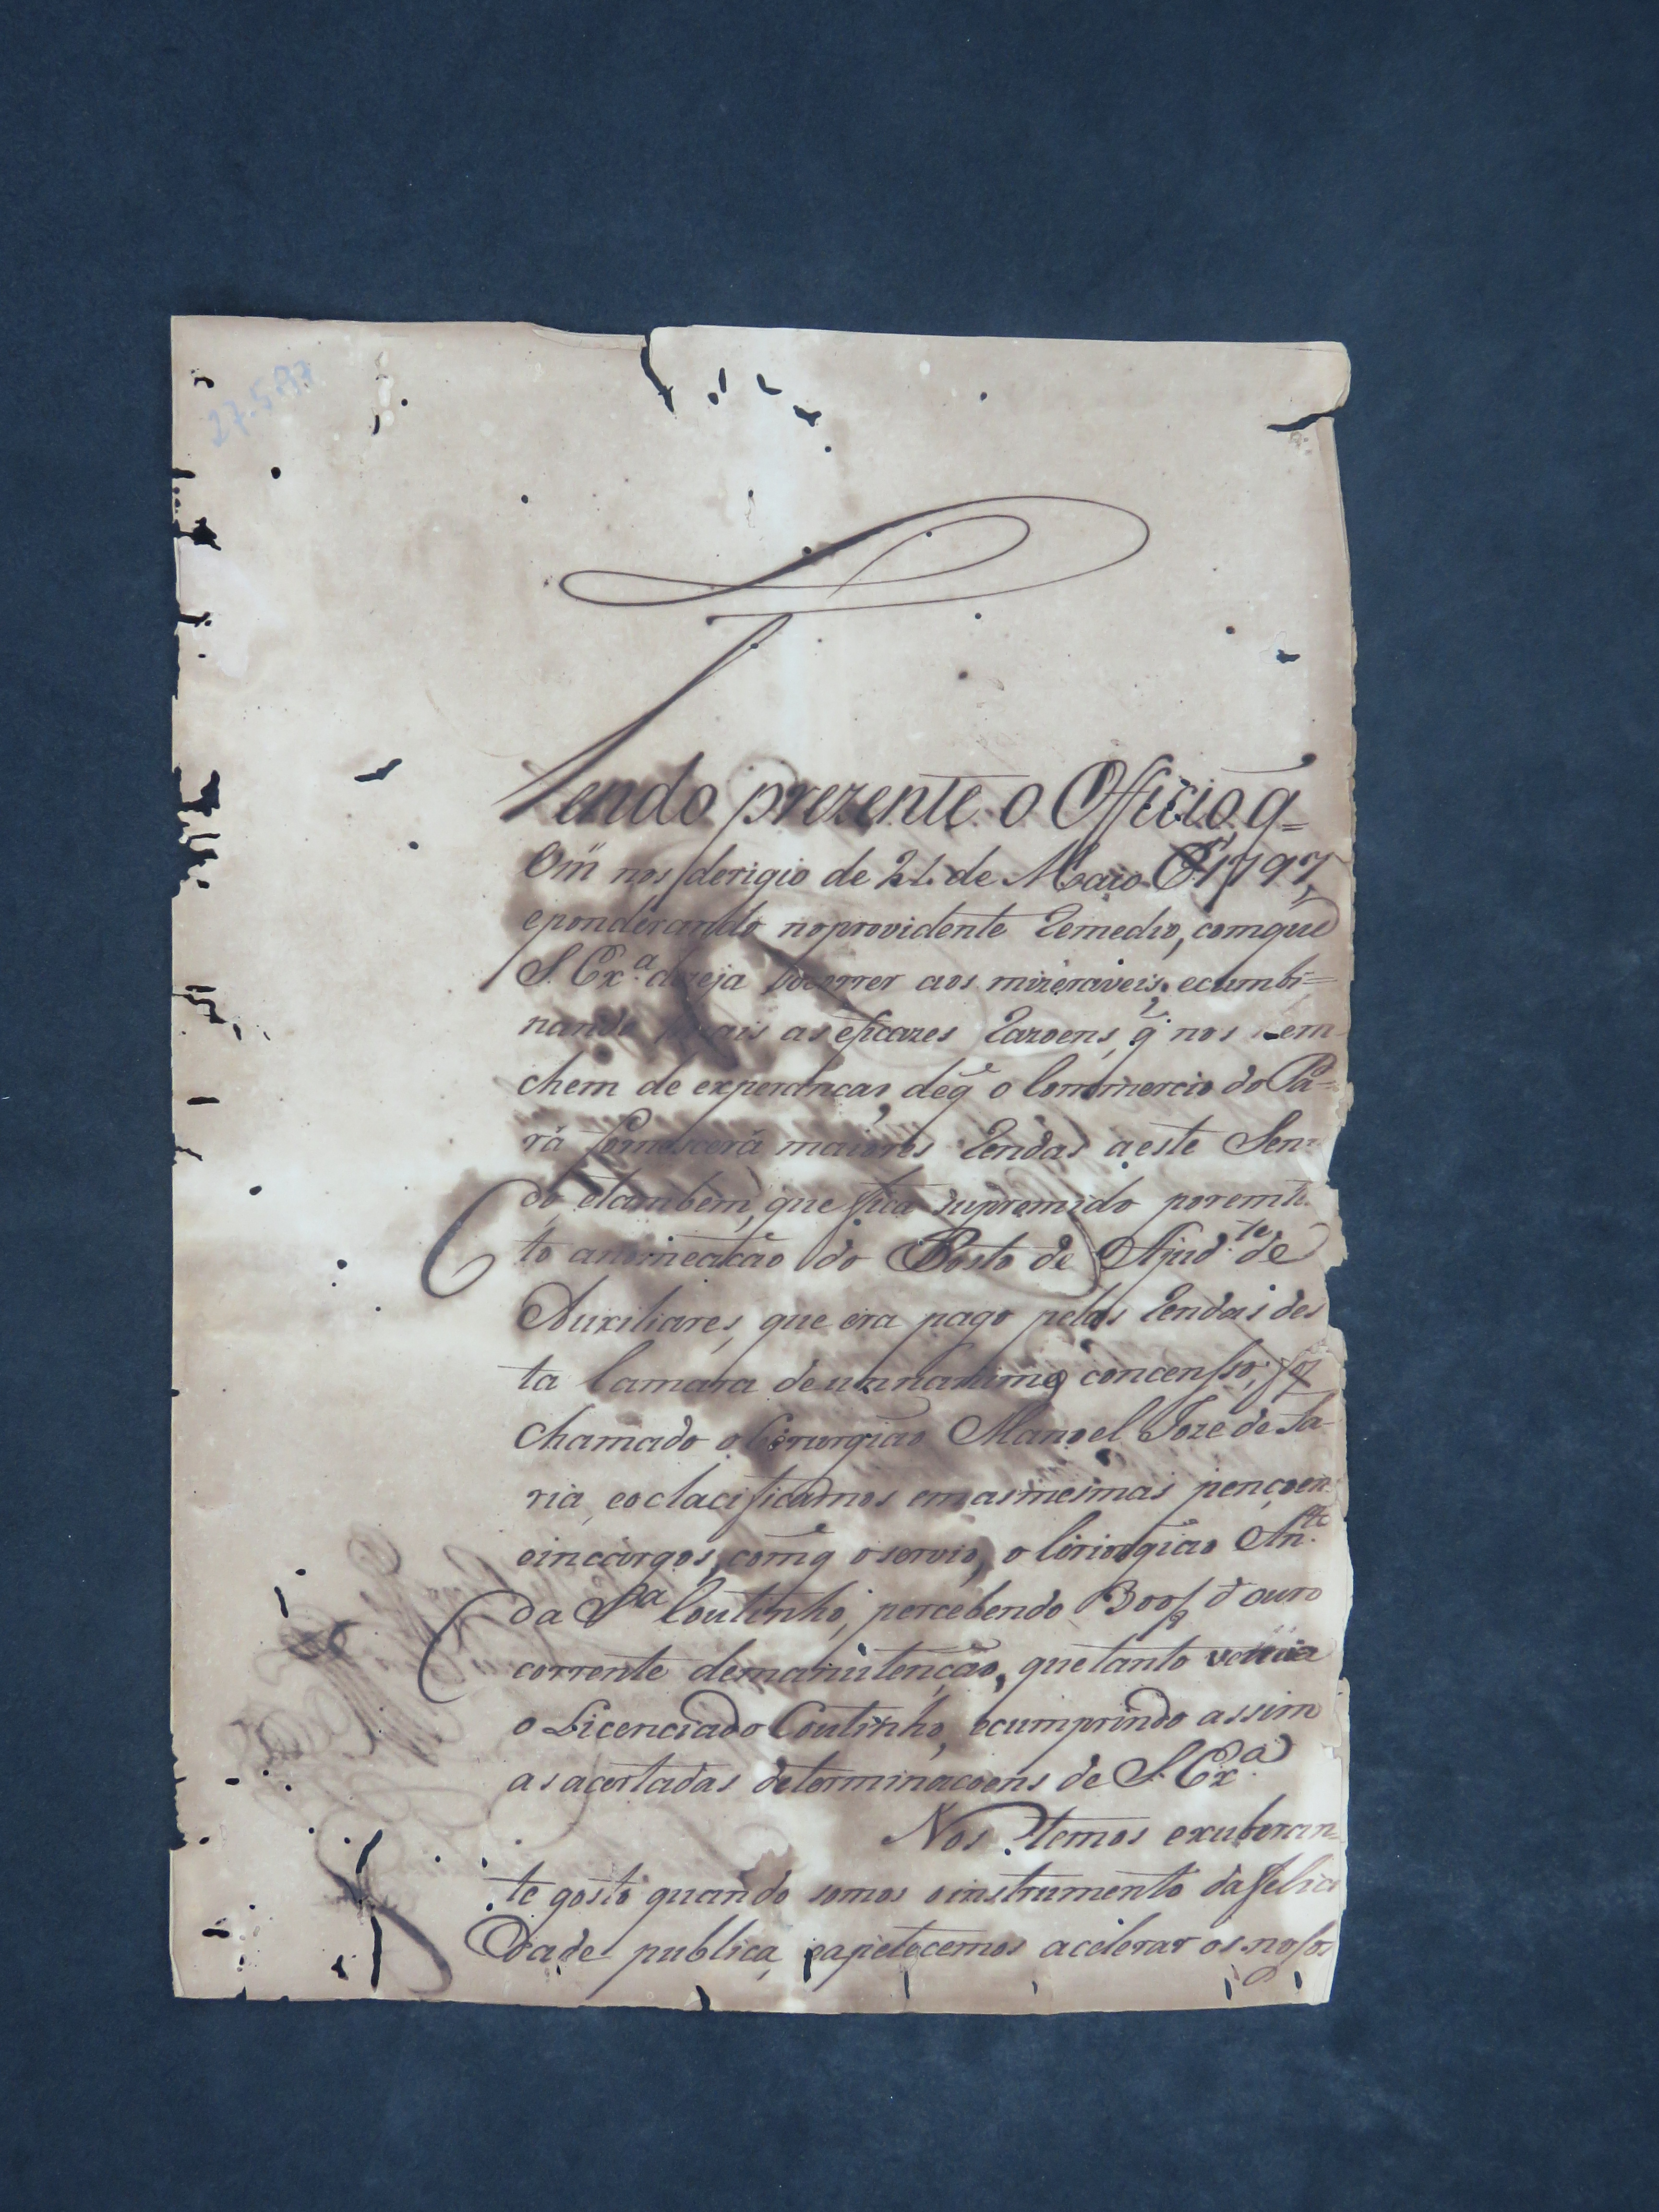 Tendo prezente o Officio, q̃
Vm̃ nos derigio de 21 de Maio de 1797,
eponderando noprovidente remedio, comque
S. Ex.ª dezeja socorrer aos mizeraveis, ecumbi=
nando mais as eficazes razoens, q̃ nos em
chem de experancas, deq̃ o Commercio do Pa=
rá fornescerá maiores rendas aeste Sen
do etambem, que fica supremido
to anomeacão do Posto de Ajud.te de
Auxiliares, que era pago pelas rendas des
ta Camara deunnanime concenso; foi
chamado o Cirurgiao Manoel Joze de Fa-
ria, eoclacificamos emasmesmas pençoen
eincargos, comq̃ oservio, o Ciriorgião An.to
da S.ª Coutinho, percebendo 300/8 d'ouro
corrente demanutenção, quetanto vencia
o Licenciado Coutinho, ecumprindo assim
asacertadas determinacoens de S. Ex.ª
Nos temos exuberan=
te gosto quando somos oinstrumento dafelici
dade publica, eapetecemos acelerar os nosos